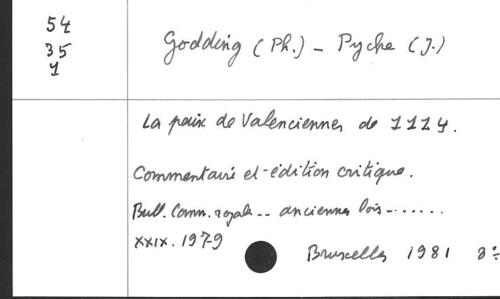 54
35
1
Godding (Ph.) - Pycke (J.)
La paix de Valenciennes de 1114.
Commentaire et édition critique.
Bull. Comm. royale .. anciennes lois .......
XXIX. 1979
Bruxelles 1981 8°